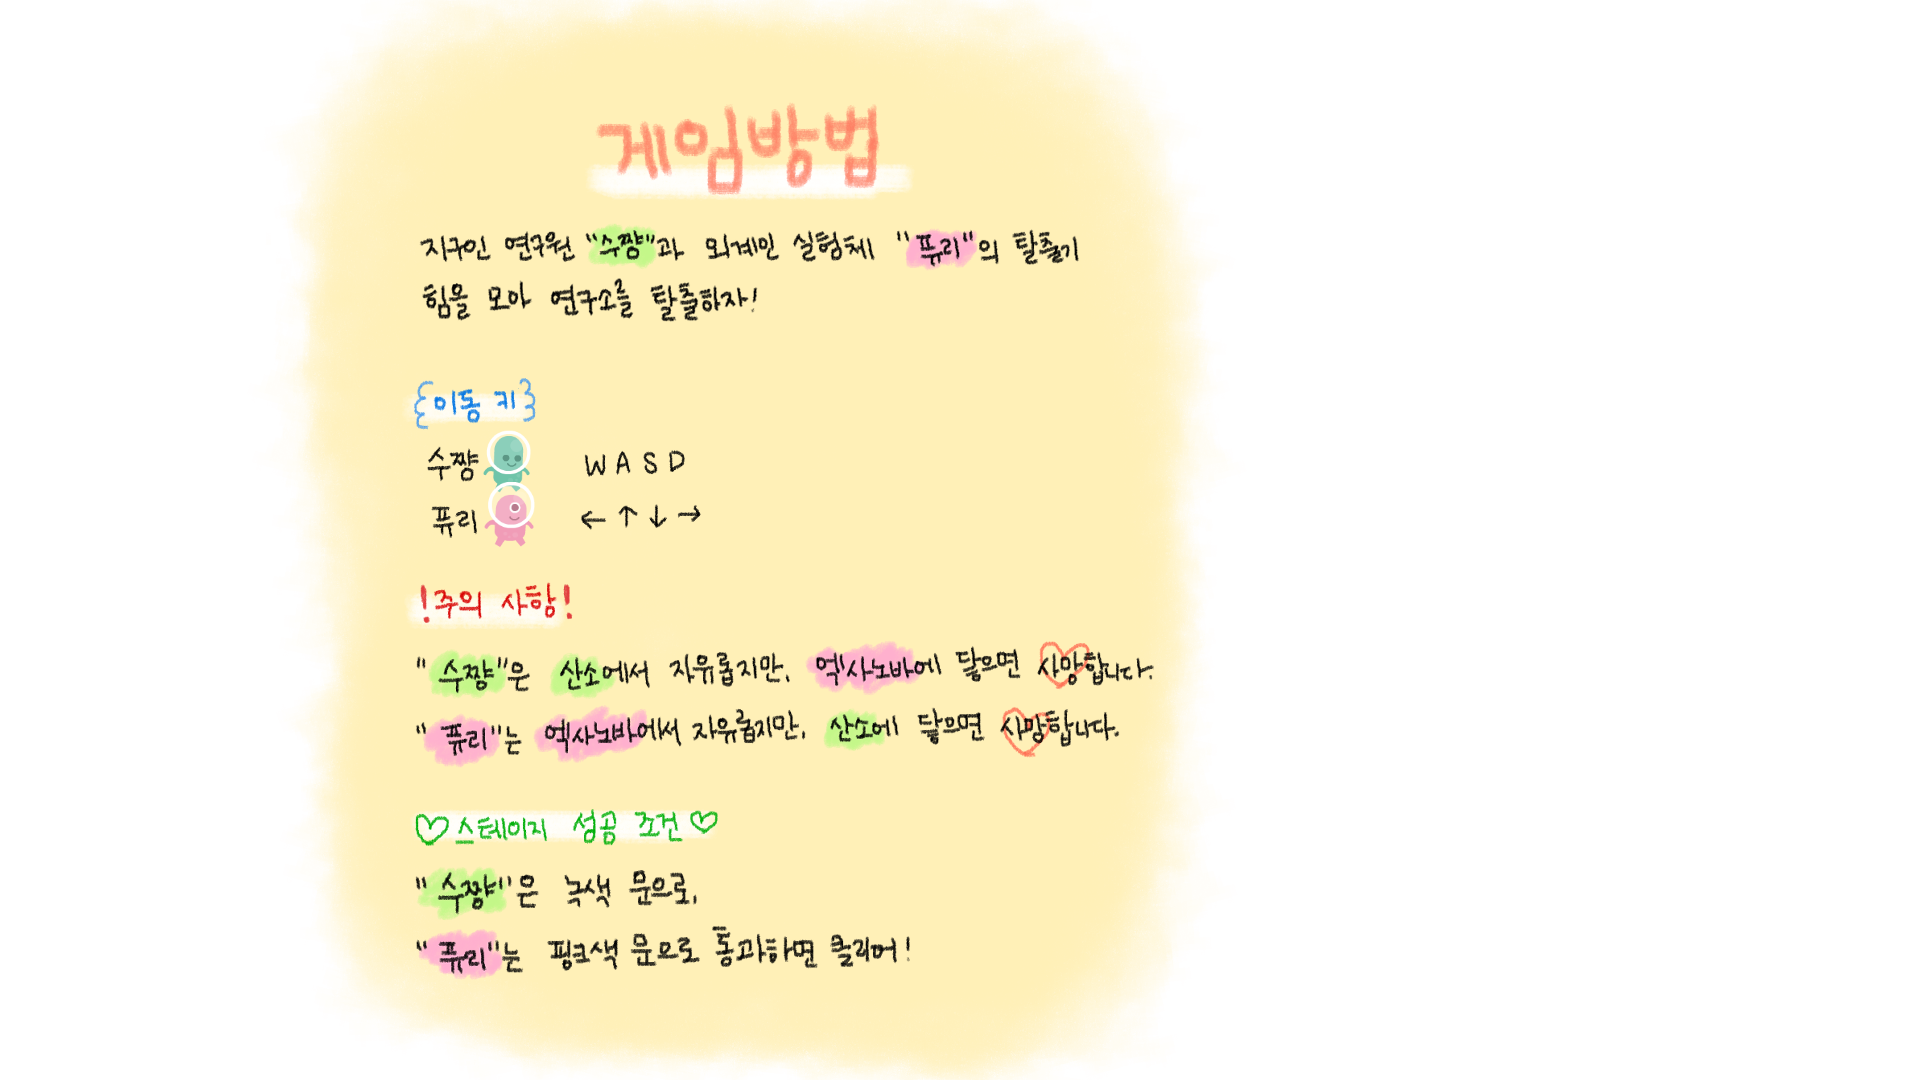 게임방법
지구인 연구원 "수쨩"과 외계인 실험체 "퓨리"의 탈출기
힘을 모아 연구소를 탈출하자!
{이동 키}
수쨩 W A S D
퓨리 ← ↑ ↓ →
!주의 사항!
"수쨩"은 산소에서 자유롭지만, 엑사노바에 닿으면 사망합니다.
"퓨리"는 엑사노바에서 자유롭지만, 산소에 닿으면 사망합니다.
♡스테이지 성공 조건♡
"수쨩"은 녹색 문으로,
"퓨리"는 핑크색 문으로 통과하면 클리어!